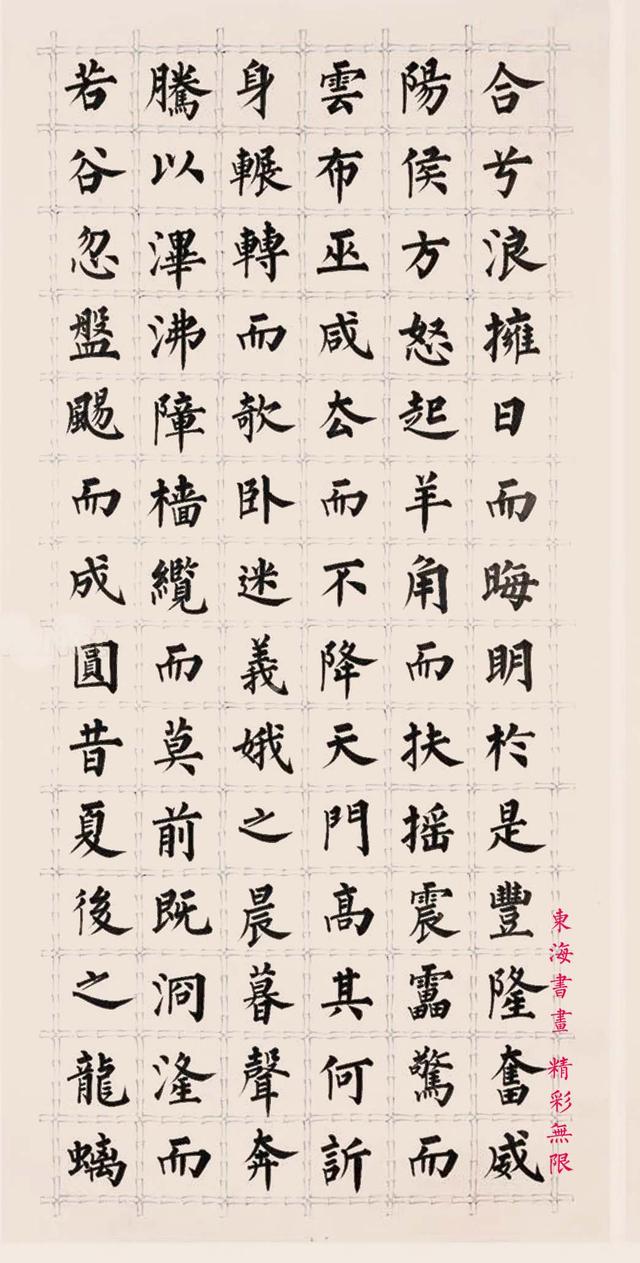 合兮浪擁日而晦明於是豐隆奮威
陽侯方怒起羊角而扶摇震靁驚而
雲布巫咸厺而不降天門高其何訴
身輾轉而欹卧迷義娥之晨暮聲奔
騰以滭沸障檣纜而莫前既泂湰而
若谷忽盤颺而成圓昔夏後之龍螭
東海書畫 精彩無限